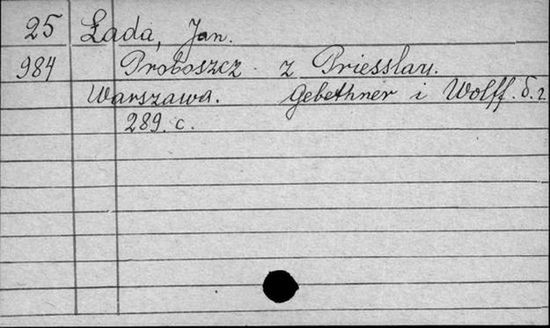 25 Łada, Jan.
984 Proboszcz z Priesslau.
Warszawa. Gebethner i Wolff. б. г.
289. с.